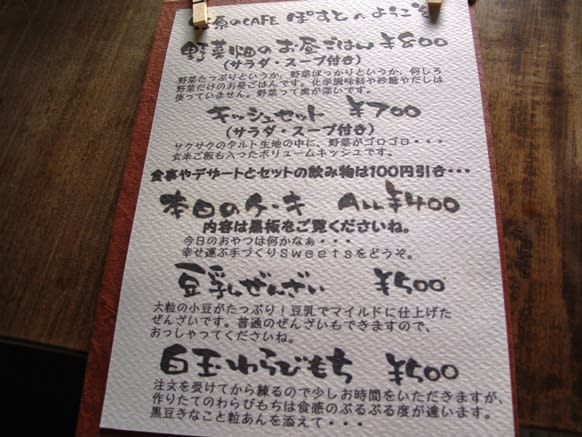 原のCAFE ぽすとへようこそ
野菜畑のお昼ごはん ¥800
(サラダ・スープ付き)
野菜たっぷりというか、野菜ばっかりというか、何しろ
野菜だけのお昼ごはんです。化学調味料や砂糖やだしは
使っていません。野菜って奥が深いです。
キッシュセット ¥700
(サラダ・スープ付き)
サクサクのタルト生地の中に、野菜がゴロゴロ・・・
玄米ご飯も入ったボリュームキッシュです。
食事やデザートとセットの飲み物は100円引き・・・
本日のケーキ ALL¥400
内容は黒板をご覧くださいね。
今日のおやつは何かなぁ・・・
幸せ運ぶ手づくりsweetsをどうぞ。
豆乳ぜんざい ¥500
大粒の小豆がたっぷり!豆乳でマイルドに仕上げた
ぜんざいです。普通のぜんざいもできますので、
おっしゃってくださいね。
白玉わらびもち ¥500
注文を受けてから練るので少しお時間をいただきますが、
作りたてのわらびもちは食感のぷるぷる度が違います。
黒豆きなこと粒あんを添えて・・・